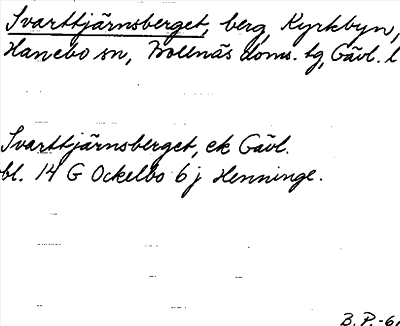 Svarttjärnsberget, berg, Kyrkbyn,
Hanebo sn, Bollnäs doms. tg, Gävl. l
Svarttjärnsberget, ek Gävl.
bl. 14 G Ockelbo 6 j Henninge.
B.P.-6